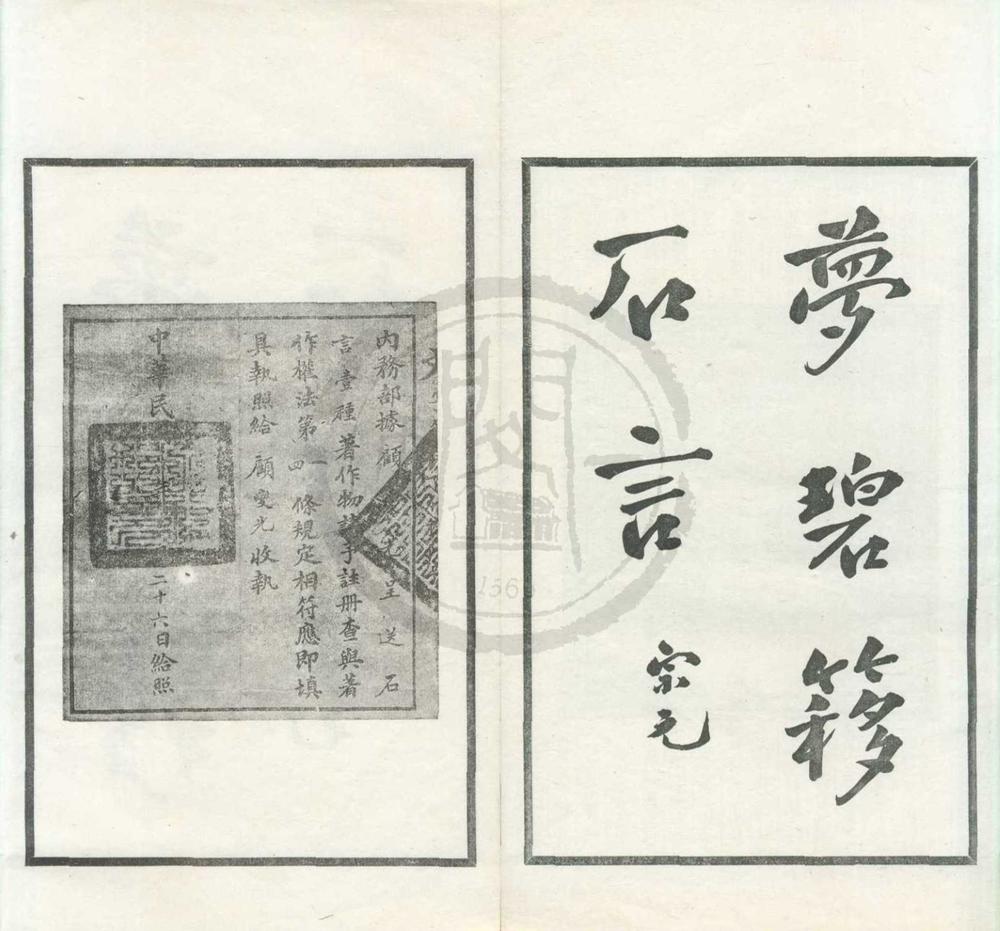 夢碧簃
石言
宗元
內務部據顧光呈送石
言壹種著作物請予註冊查與著
作權法第一四條規定相符應即填
具執照給顧燮光收執
中華民二十六日給照